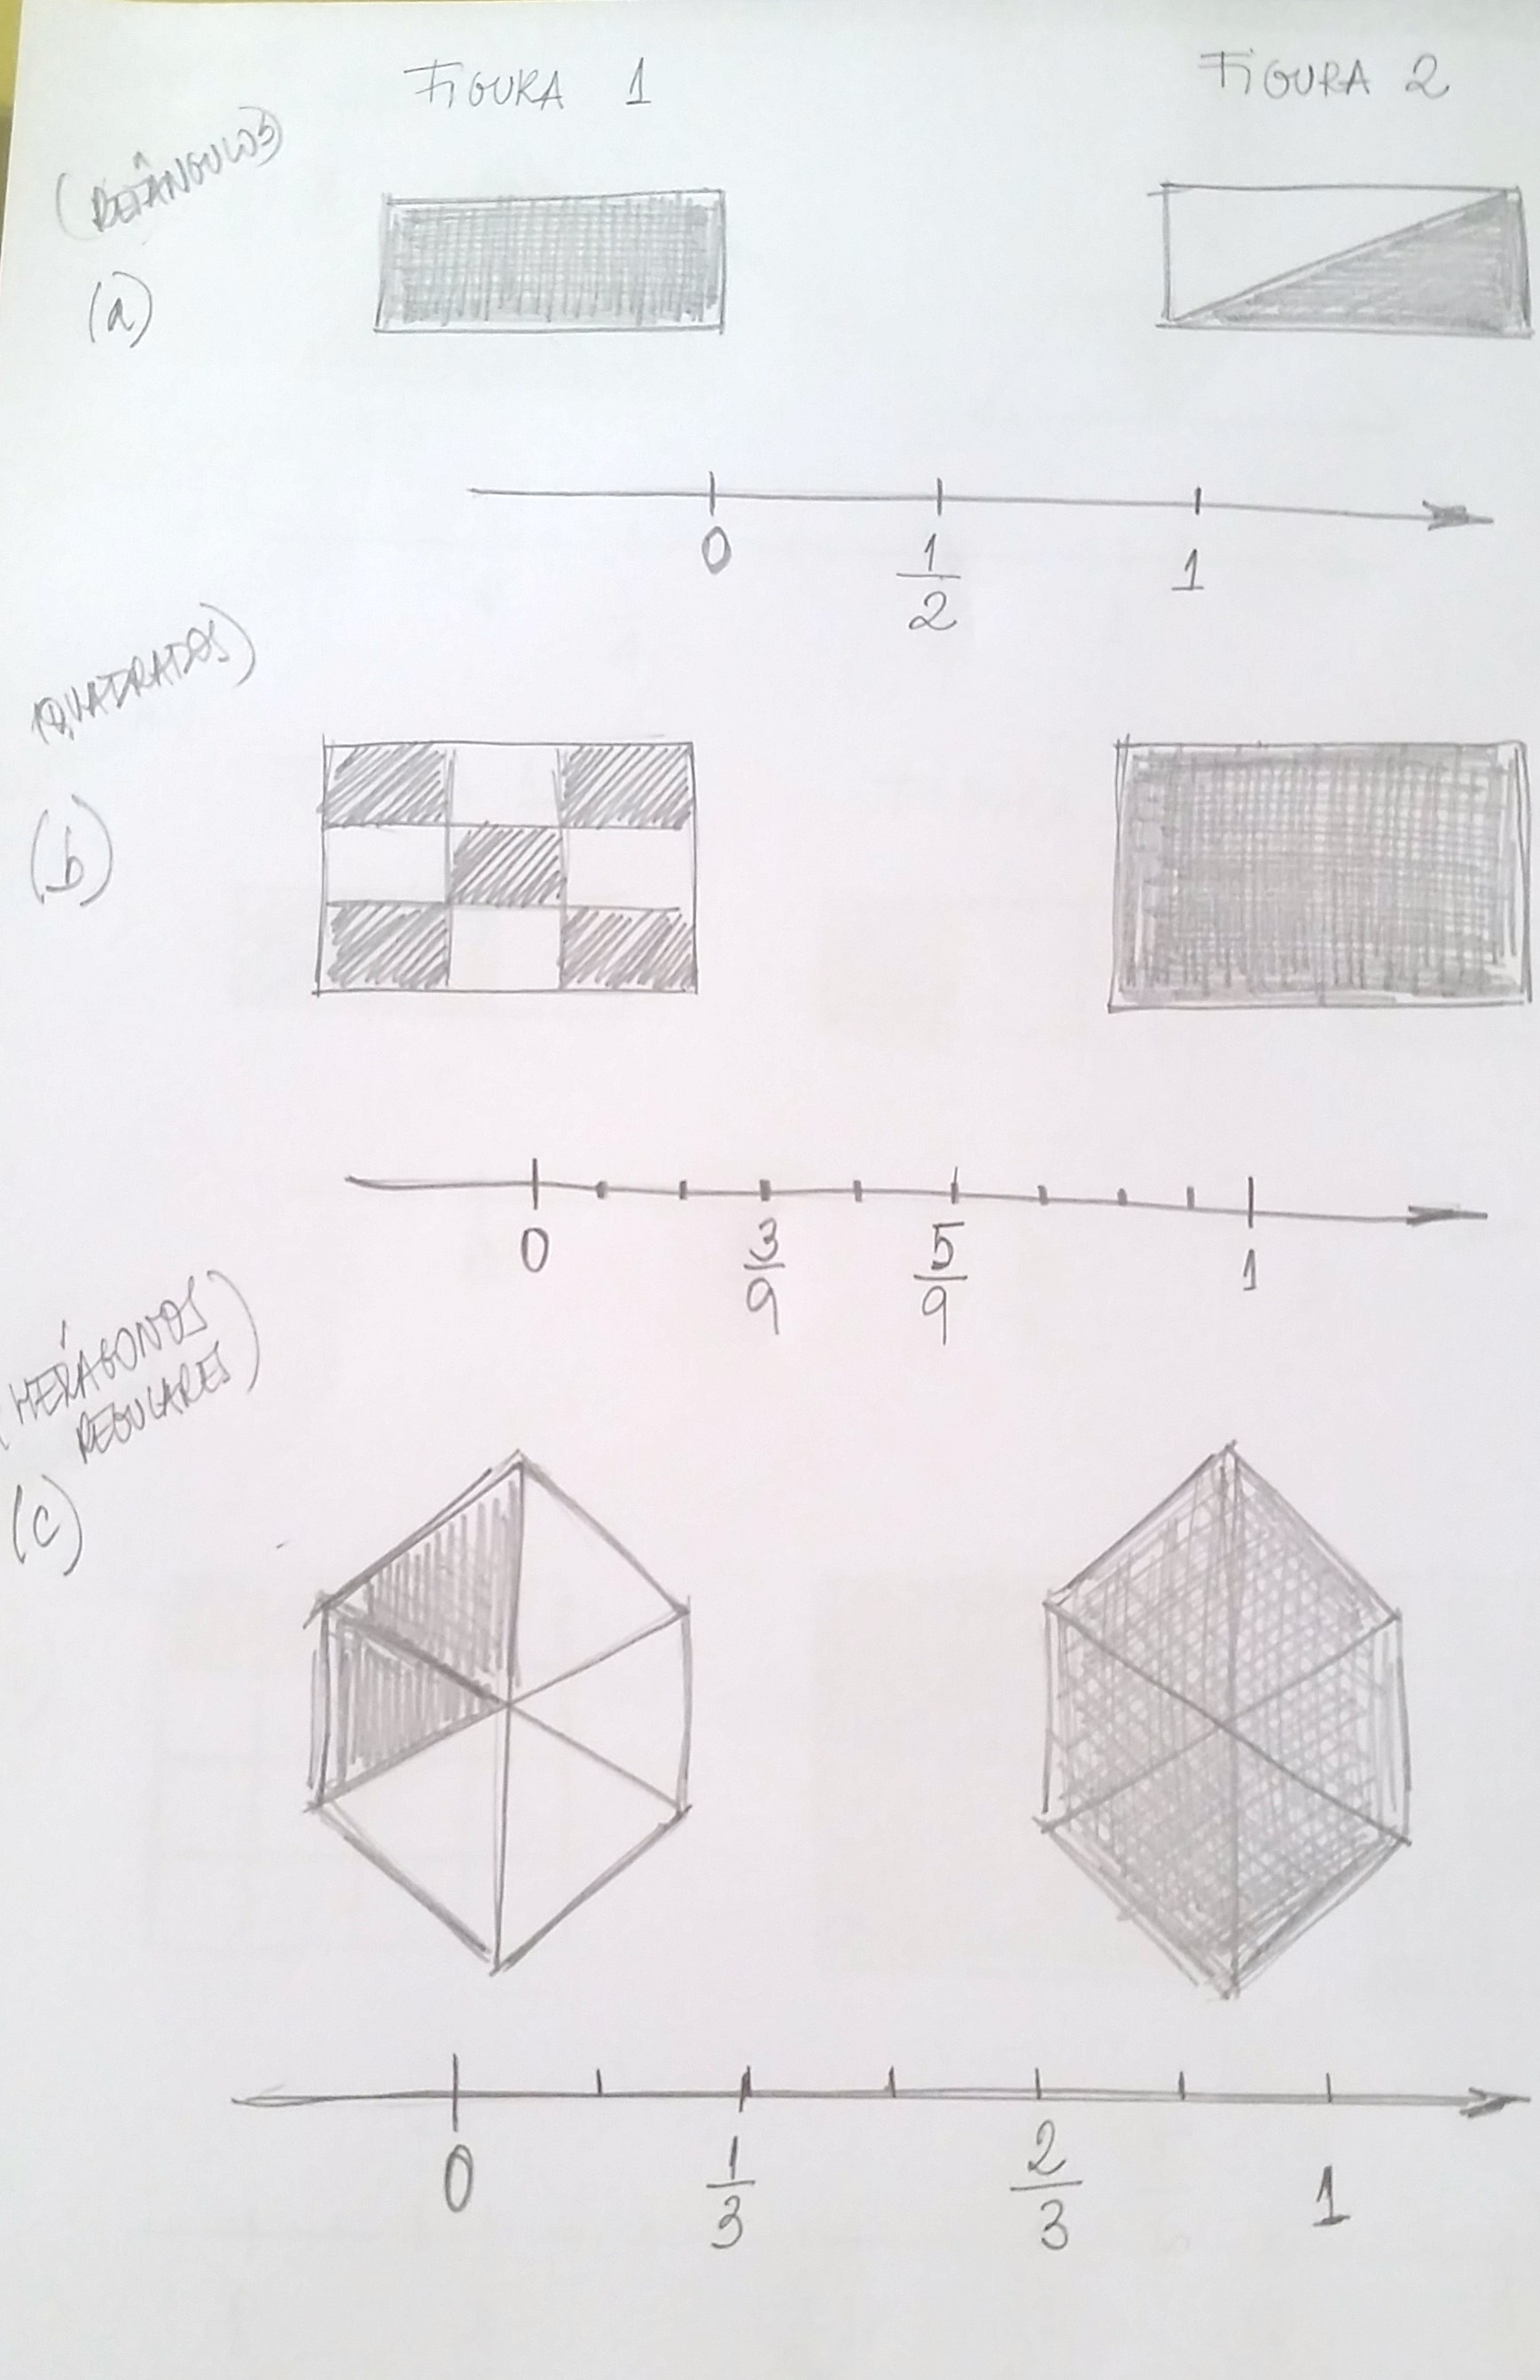 FIGURA 1
FIGURA 2
(RETÂNGULOS)
(a)
0
1/2
1
QUADRADOS)
(b)
0
3/9
5/9
1
(HEXÁGONOS
REGULARES)
(c)
0
1/3
2/3
1